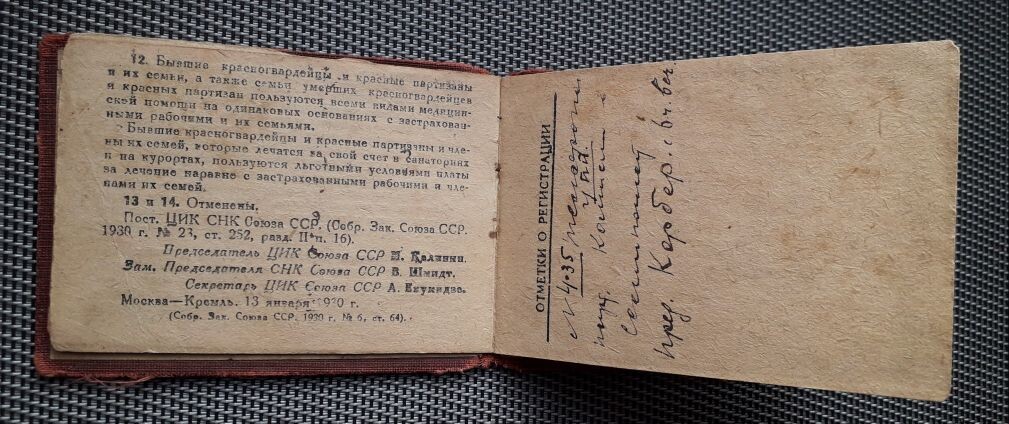 12. Бывшие красногвардейцы и красные партизаны
и их семьи, а также семьи умерших красногвардейцев
и красных партизан пользуются всеми видами медицин-
ской помощи на одинаковых основаниях с застрахован-
ными рабочими и их семьями.
Бывшие красногвардейцы и красные партизаны и чле-
ны их семей, которые лечатся за свой счет в санаториях
и на курортах, пользуются льготными условиями платы
за лечение наравне с застрахованными рабочими и чле-
нами их семей.
13 и 14. Отменены.
Пост. ЦИК СНК Союза ССР. (Собр. Зак. Союза ССР.
1930 г. № 23, ст. 252, разд. II п. 16).
Председатель ЦИК Союза ССР М. Калинин.
Зам. Председателя СНК Союза ССР В. Шмидт.
Секретарь ЦИК Союза ССР А. Енукидзе.
Москва—Кремль. 13 января 1930 г.
(Собр. Зак. Союза ССР. 1930 г. № 6, ст. 64).
ОТМЕТКИ О РЕГИСТРАЦИИ
№ 435
пред. Кербер